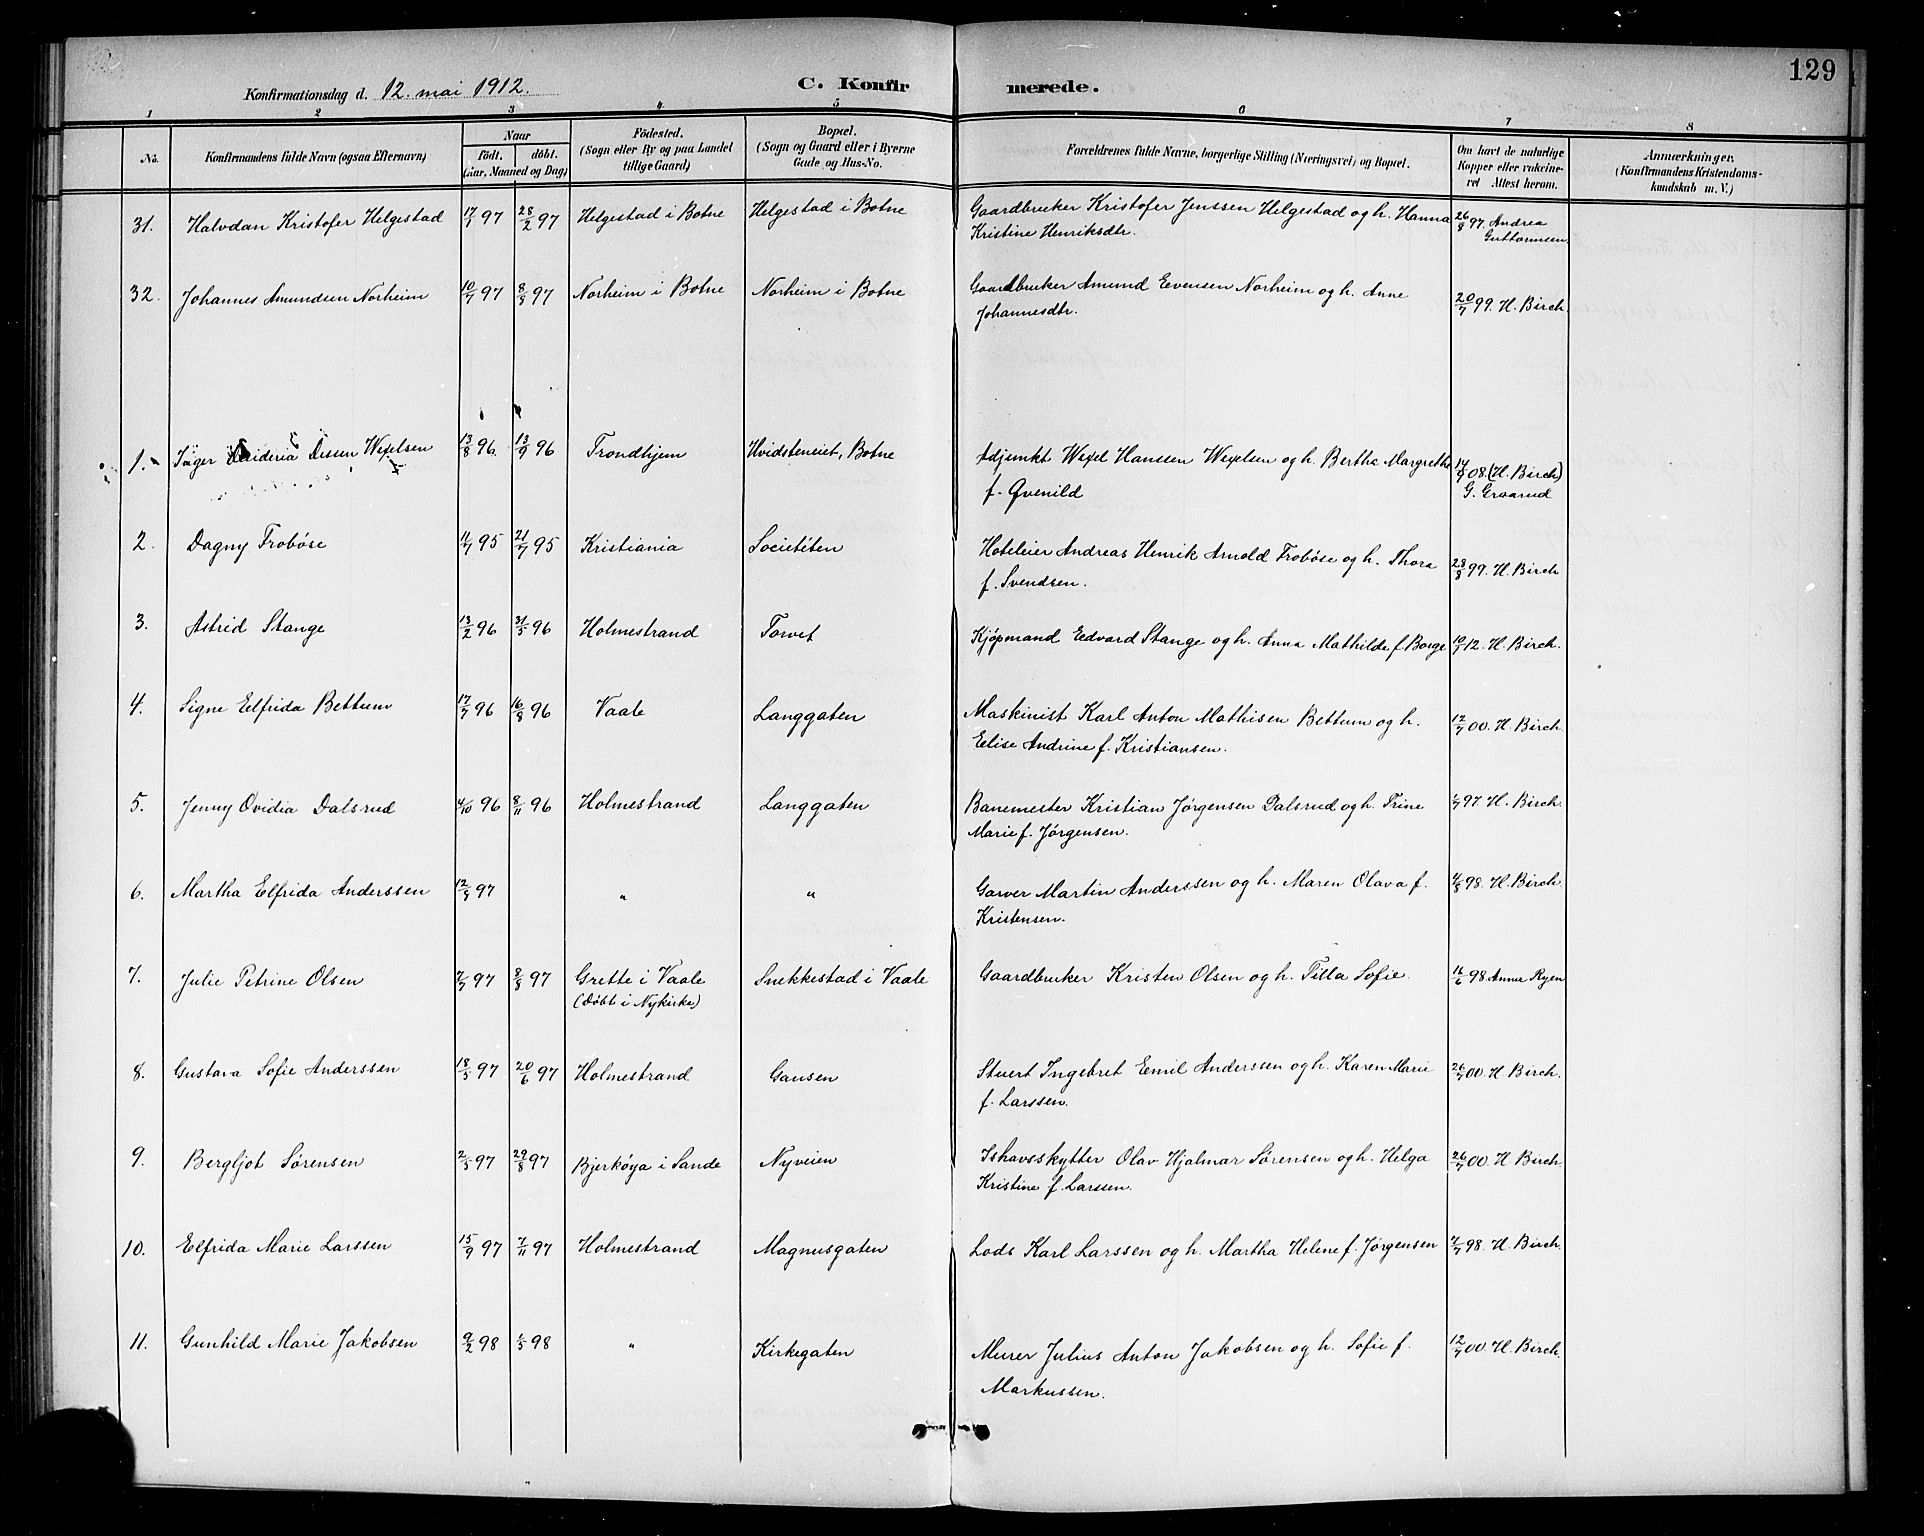 129
Konfirmationsdag d. 12. mai 1912. C. Konfirmerede.
1 2 3 4 5 6 7 8
No. Konfirmandens fulde Navn (ogsaa Efternavn) Naar født. døbt. (Aar, Maaned og Dag) Fødested. (Sogn eller By og paa Landet tillige Gaard) Bopæl. (Sogn og Gaard eller i Byerne Gade og Hus-No. Forældrenes fulde Navne, borgerlige Stilling (Næringsvei) og Bopæl. Om havt de naturlige Kopper eller vaccineret Attest herom. Anmærkninger. (Konfirmandens Kristendomskundskab m. V.)
31. Halvdan Kristofer Helgestad 17/1 97 28/2 97 Helgestad i Botne Helgestad i Botne Gaardbruker Kristofer Jenssen Helgestad og h. Hanna 26/8 97. Andrea
Kristine Henriksdtr. Guttormsen
32. Johannes Amundsen Norheim 10/7 97 8/8 97 Norheim i Botne Norheim i Botne Gaardbruker Amund Evensen Norheim og h. Anne
Johannesdtr. 20/7 99. H. Birch.
1. Wexelsen 13/8 96. 13/9 96 Trondhjem Hvidsteneiet, Botne Adjunkt Wexel Hanssen Wexelsen og h. Bertha Margrethe 08. (H. Birch)
f. Qvenild G. Graarud
2. Dagny Frobøse 11/7 95 21/7 95 Kristiania Societéten Hoteleier Andreas Henrik Arnold Frobøse og h. Thora
f. Svendsen. 28/8 99. H. Birch
3. Astrid Stange 13/2 96 31/5 96 Holmestrand Torvet Kjøpmand Edvard Stange og h. Anna Mathilde f. Borge 10/1 12. H. Birch.
4. Signe Elfrida Bettum 17/7 96 16/8 96 Vaale Langgaten Maskinist Karl Anton Mathisen Bettum og h.
Elise Andrine f. Kristiansen. 12/7 00. H. Birch.
5. Jenny Ovidia Dalsrud 4/10 96 8/11 96 Holmestrand Langgaten Banemester Kristian Jørgensen Dalsrud og h. Trine
Marie f. Jørgensen. 1/7 97. H. Birch.
6. Martha Elfrida Anderssen 12/8 97 " " Garver Martin Anderssen og h. Maren Olava f.
Kristensen. 4/8 98. H. Birch.
7. Julie Petrine Olsen 2/7 97 8/8 97 Grette i Vaale Snekkestad i Vaale Gaardbruker Kristen Olsen og h. Tilla Sofie. 16/6 98 Anna Ryen
(døbt i Nykirke)
8. Gustava Sofie Anderssen 18/5 97 20/6 97 Holmestrand Gausen Stuert Ingebret Emil Anderssen og h. Karen Marie
f. Larssen. 26/7 00. H. Birch.
9. Bergljot Sørensen 2/5 97 29/8 97 Bjerkøya i Sande Nyveien Ishavsskytter Olav Hjalmar Sørensen og h. Helga
Kristine f. Larssen. 26/7 00. H. Birch.
10. Elfrida Marie Larssen 15/9 97 7/11 97 Holmestrand Magnusgaten Lods Karl Larssen og h. Martha Helene f. Jørgensen 7/7 98. H. Birch.
11. Gunhild Marie Jakobsen 9/2 98 1/5 98 " Kirkegaten Murer Julius Anton Jakobsen og h. Sofie f.
Markussen. 12/7 00. H. Birch.